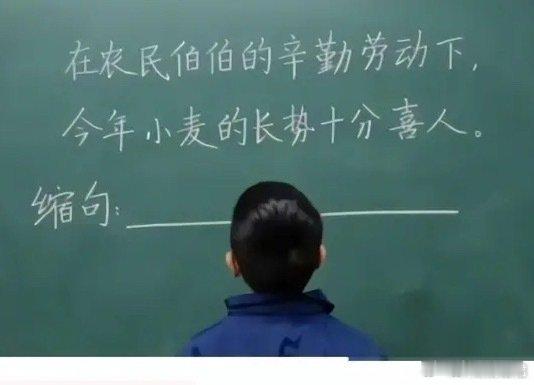 在农民伯伯的辛勤劳动下,
今年小麦的长势十分喜人。
缩句: